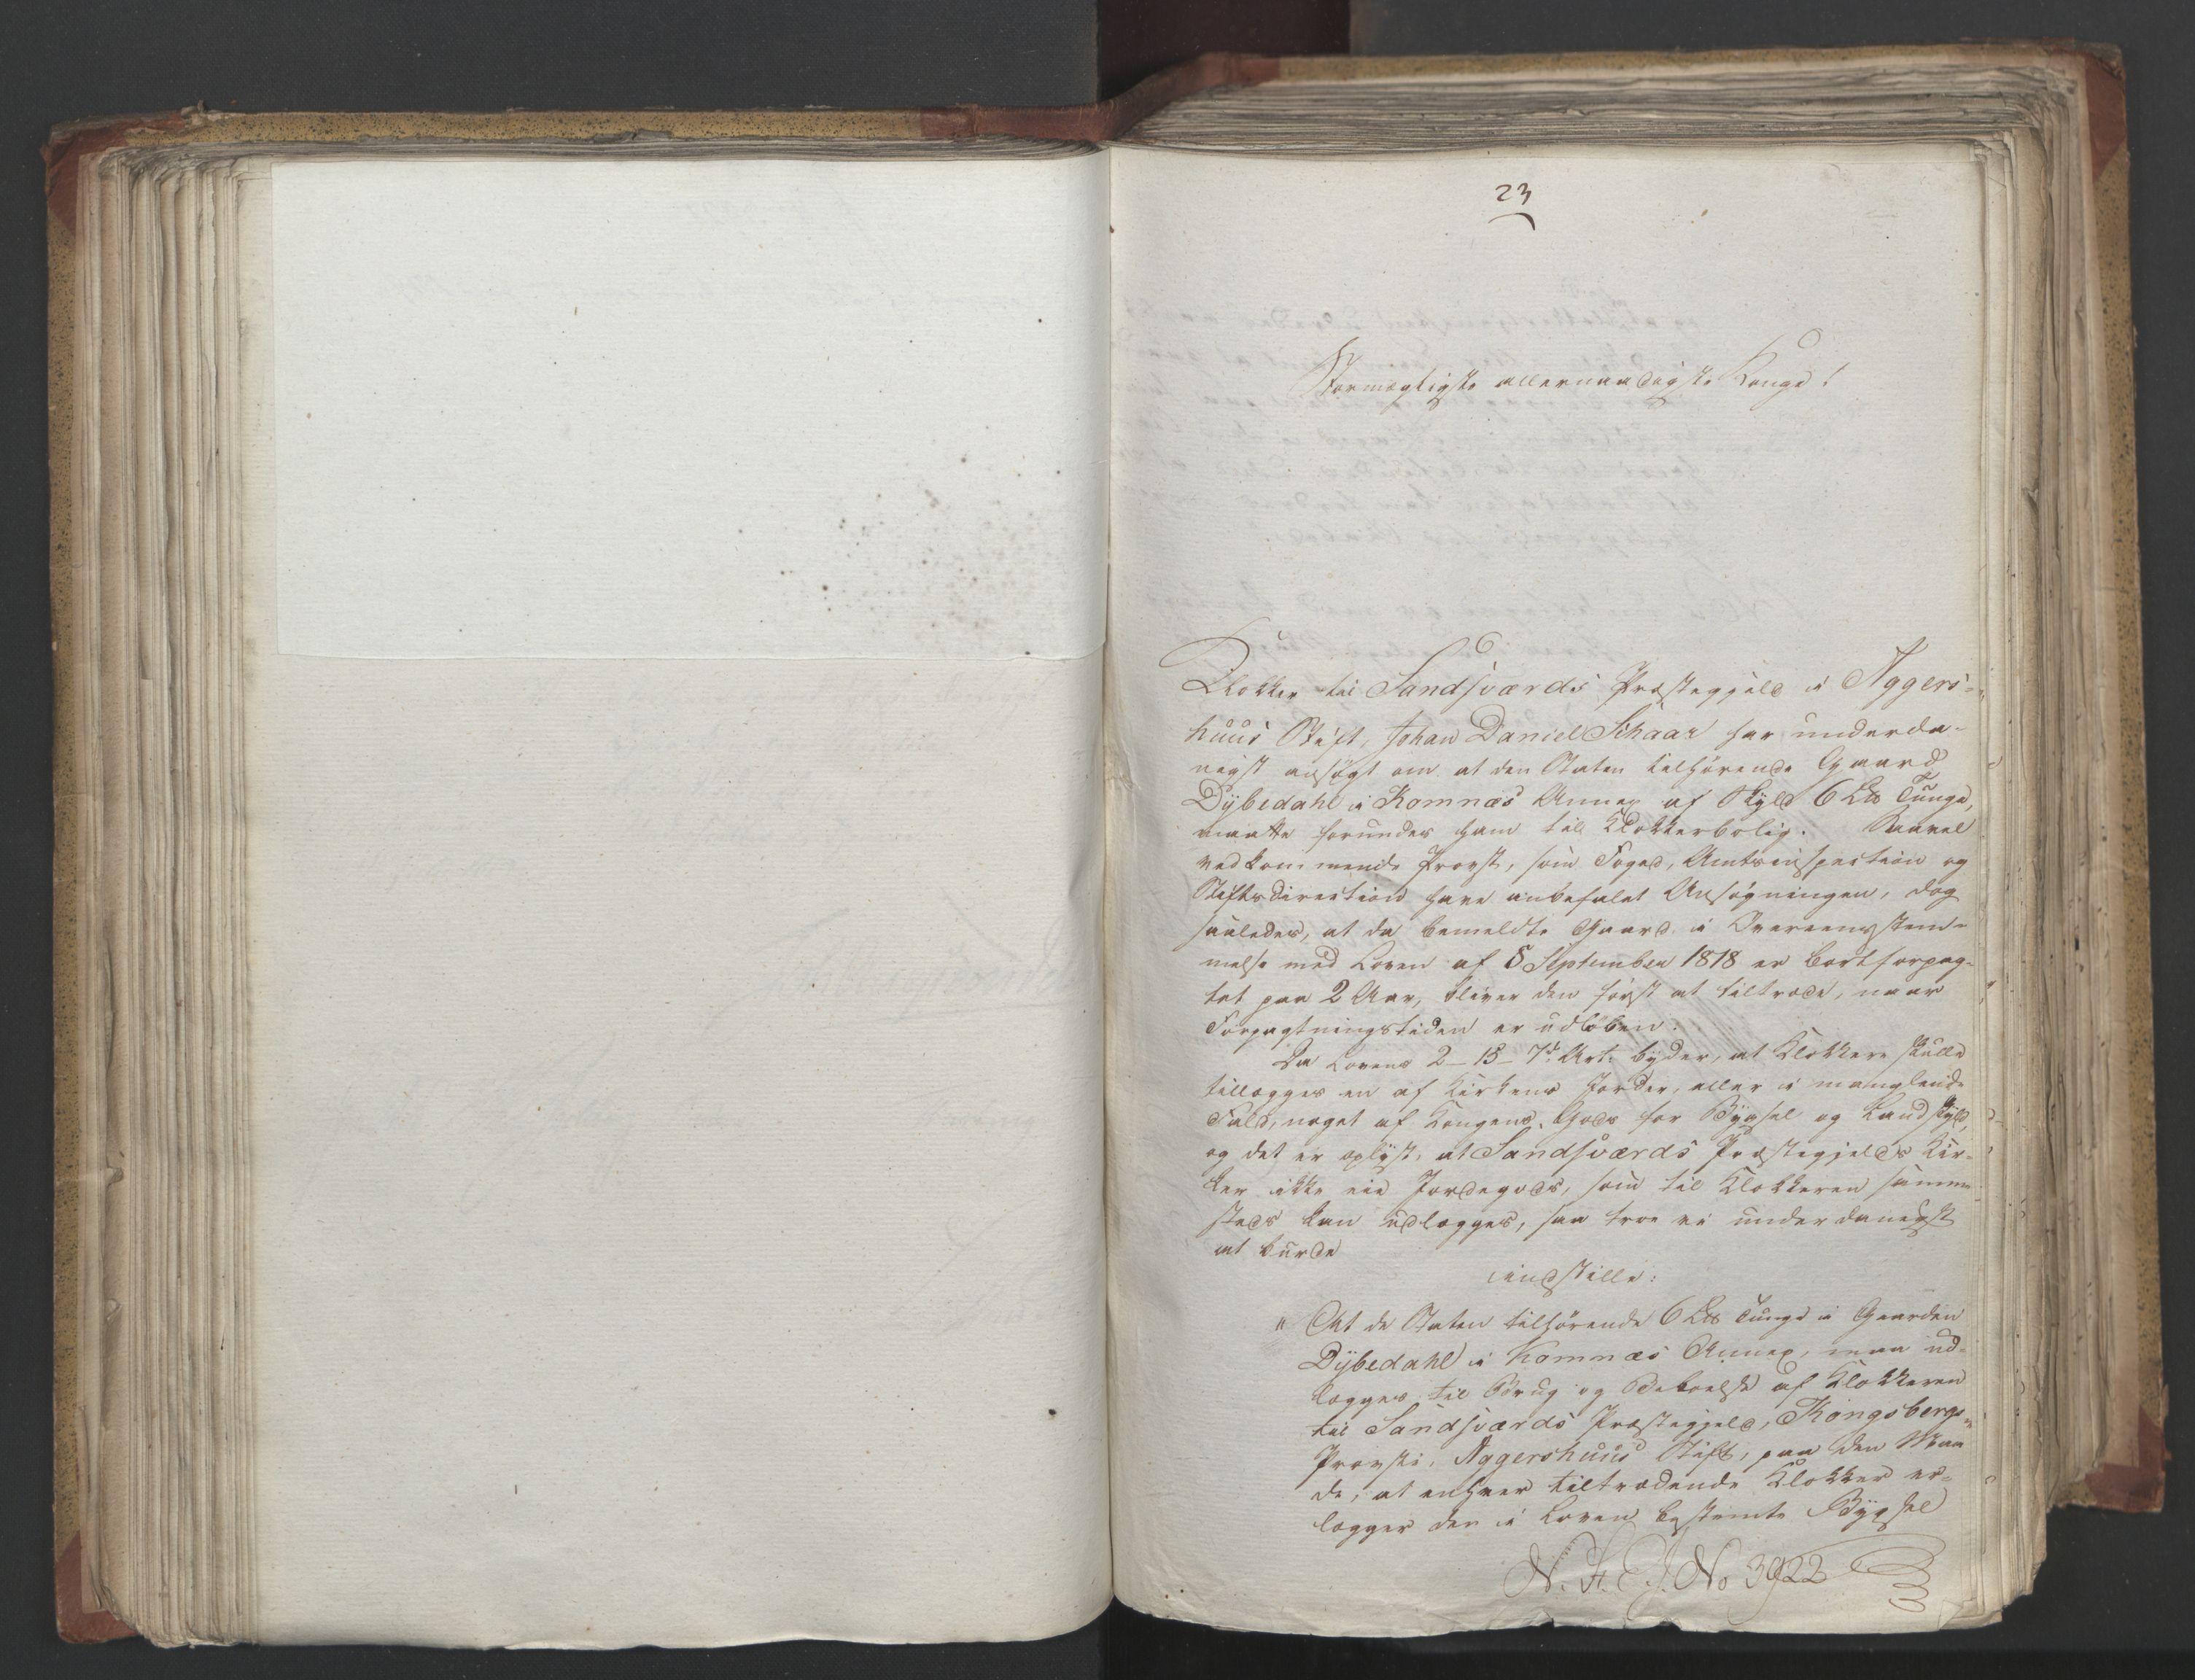 23
Stormægtigste allernaadigste Konge!
Klokker til Sandsværds Præstegjeld i Aggers-
huus Stift, Johan Daniel Schaar har underda-
nigst ansögt om at den Staten tilhörende Gaard
Dÿbedahl i Komnæs Annex af Skyld 6 Lb Tunge,
maatte forundes ham til Klokkerbolig. Saavel
vedkommende Provst, som Foged, Amtsinspection og
Stiftsdirection have anbefalet Ansögningen, dog
saaledes, at da bemeldte Gaard i Overeensstem-
melse med Loven af 5 September 1818 er bortforpag-
tet paa 2 Aar, bliver den först at tiltræde, naar
Forpagtningstiden er udlöben.
Da Lovens 2-15-7de Art. byder, at Klokkere skulle
tillægges en af Kirkens Jorder, eller i manglende
Fald, noget af Kongens Gods for Bygsel og Landskyld,
og det er oplyst, at Sandsværds Præstegjelds Kir-
ker ikke eie Jordegods, som til Klokkeren samme-
steds kan udlægges, saa troe vi underdanigst
at burde
indstille:
" At de Staten tilhörende 6 Lb Tunge i Gaarden
Dÿbedahl i Komnæs Annex, maa ud-
lægges til Brug og Beboelse af Klokkeren
til Sandsværds Præstegjeld, Kongsbergs
Provsti, Aggershuus Stift, paa den Maa
de, at enhver tiltrædende Klokker er-
lægger den i Loven bestemte Bygsel
No 3922